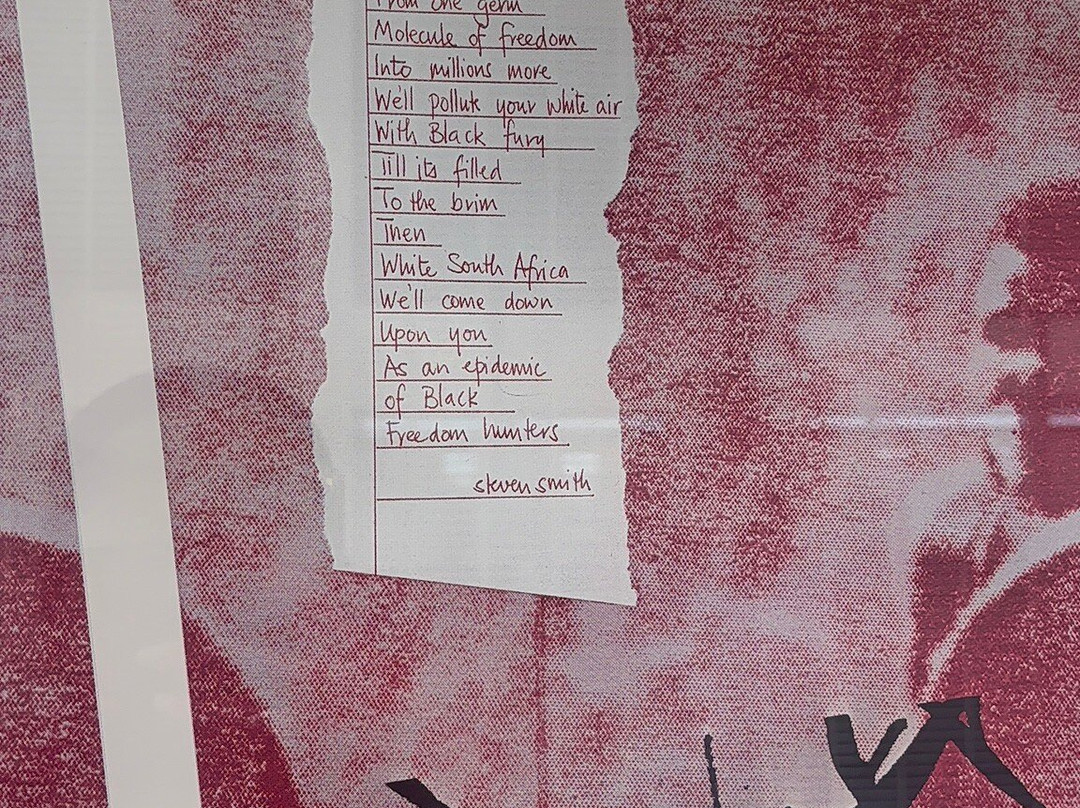 From one germ
Molecule of freedom
Into millions more
We'll pollute your white air
With Black fury
Till its filled
To the brim
Then
White South Africa
We'll come down
Upon you
As an epidemic
of Black
Freedom hunters
steven smith